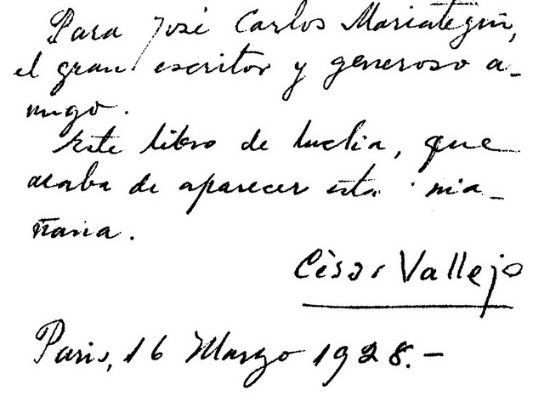 Para José Carlos Mariategui,
el gran escritor y generoso a-
migo.
Este libro de lucha, que
acaba de aparecer esta ma-
ñana.
César Vallejo
Paris, 16 Marzo 1928.-